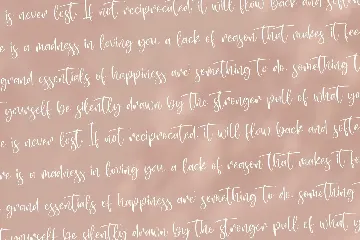 is never lost. If not reciprocated, it will flow back and soft
is a madness in loving you, a lack of reason that makes it fee
grand essentials of happiness are something to do, something t
yourself be silently drawn by the stronger pull of what yo
e is never lost. If not reciprocated, it will flow back and softe
re is a madness in loving you, a lack of reason that makes it fe
grand essentials of happiness are something to do, something
t yourself be silently drawn by the stronger pull of what